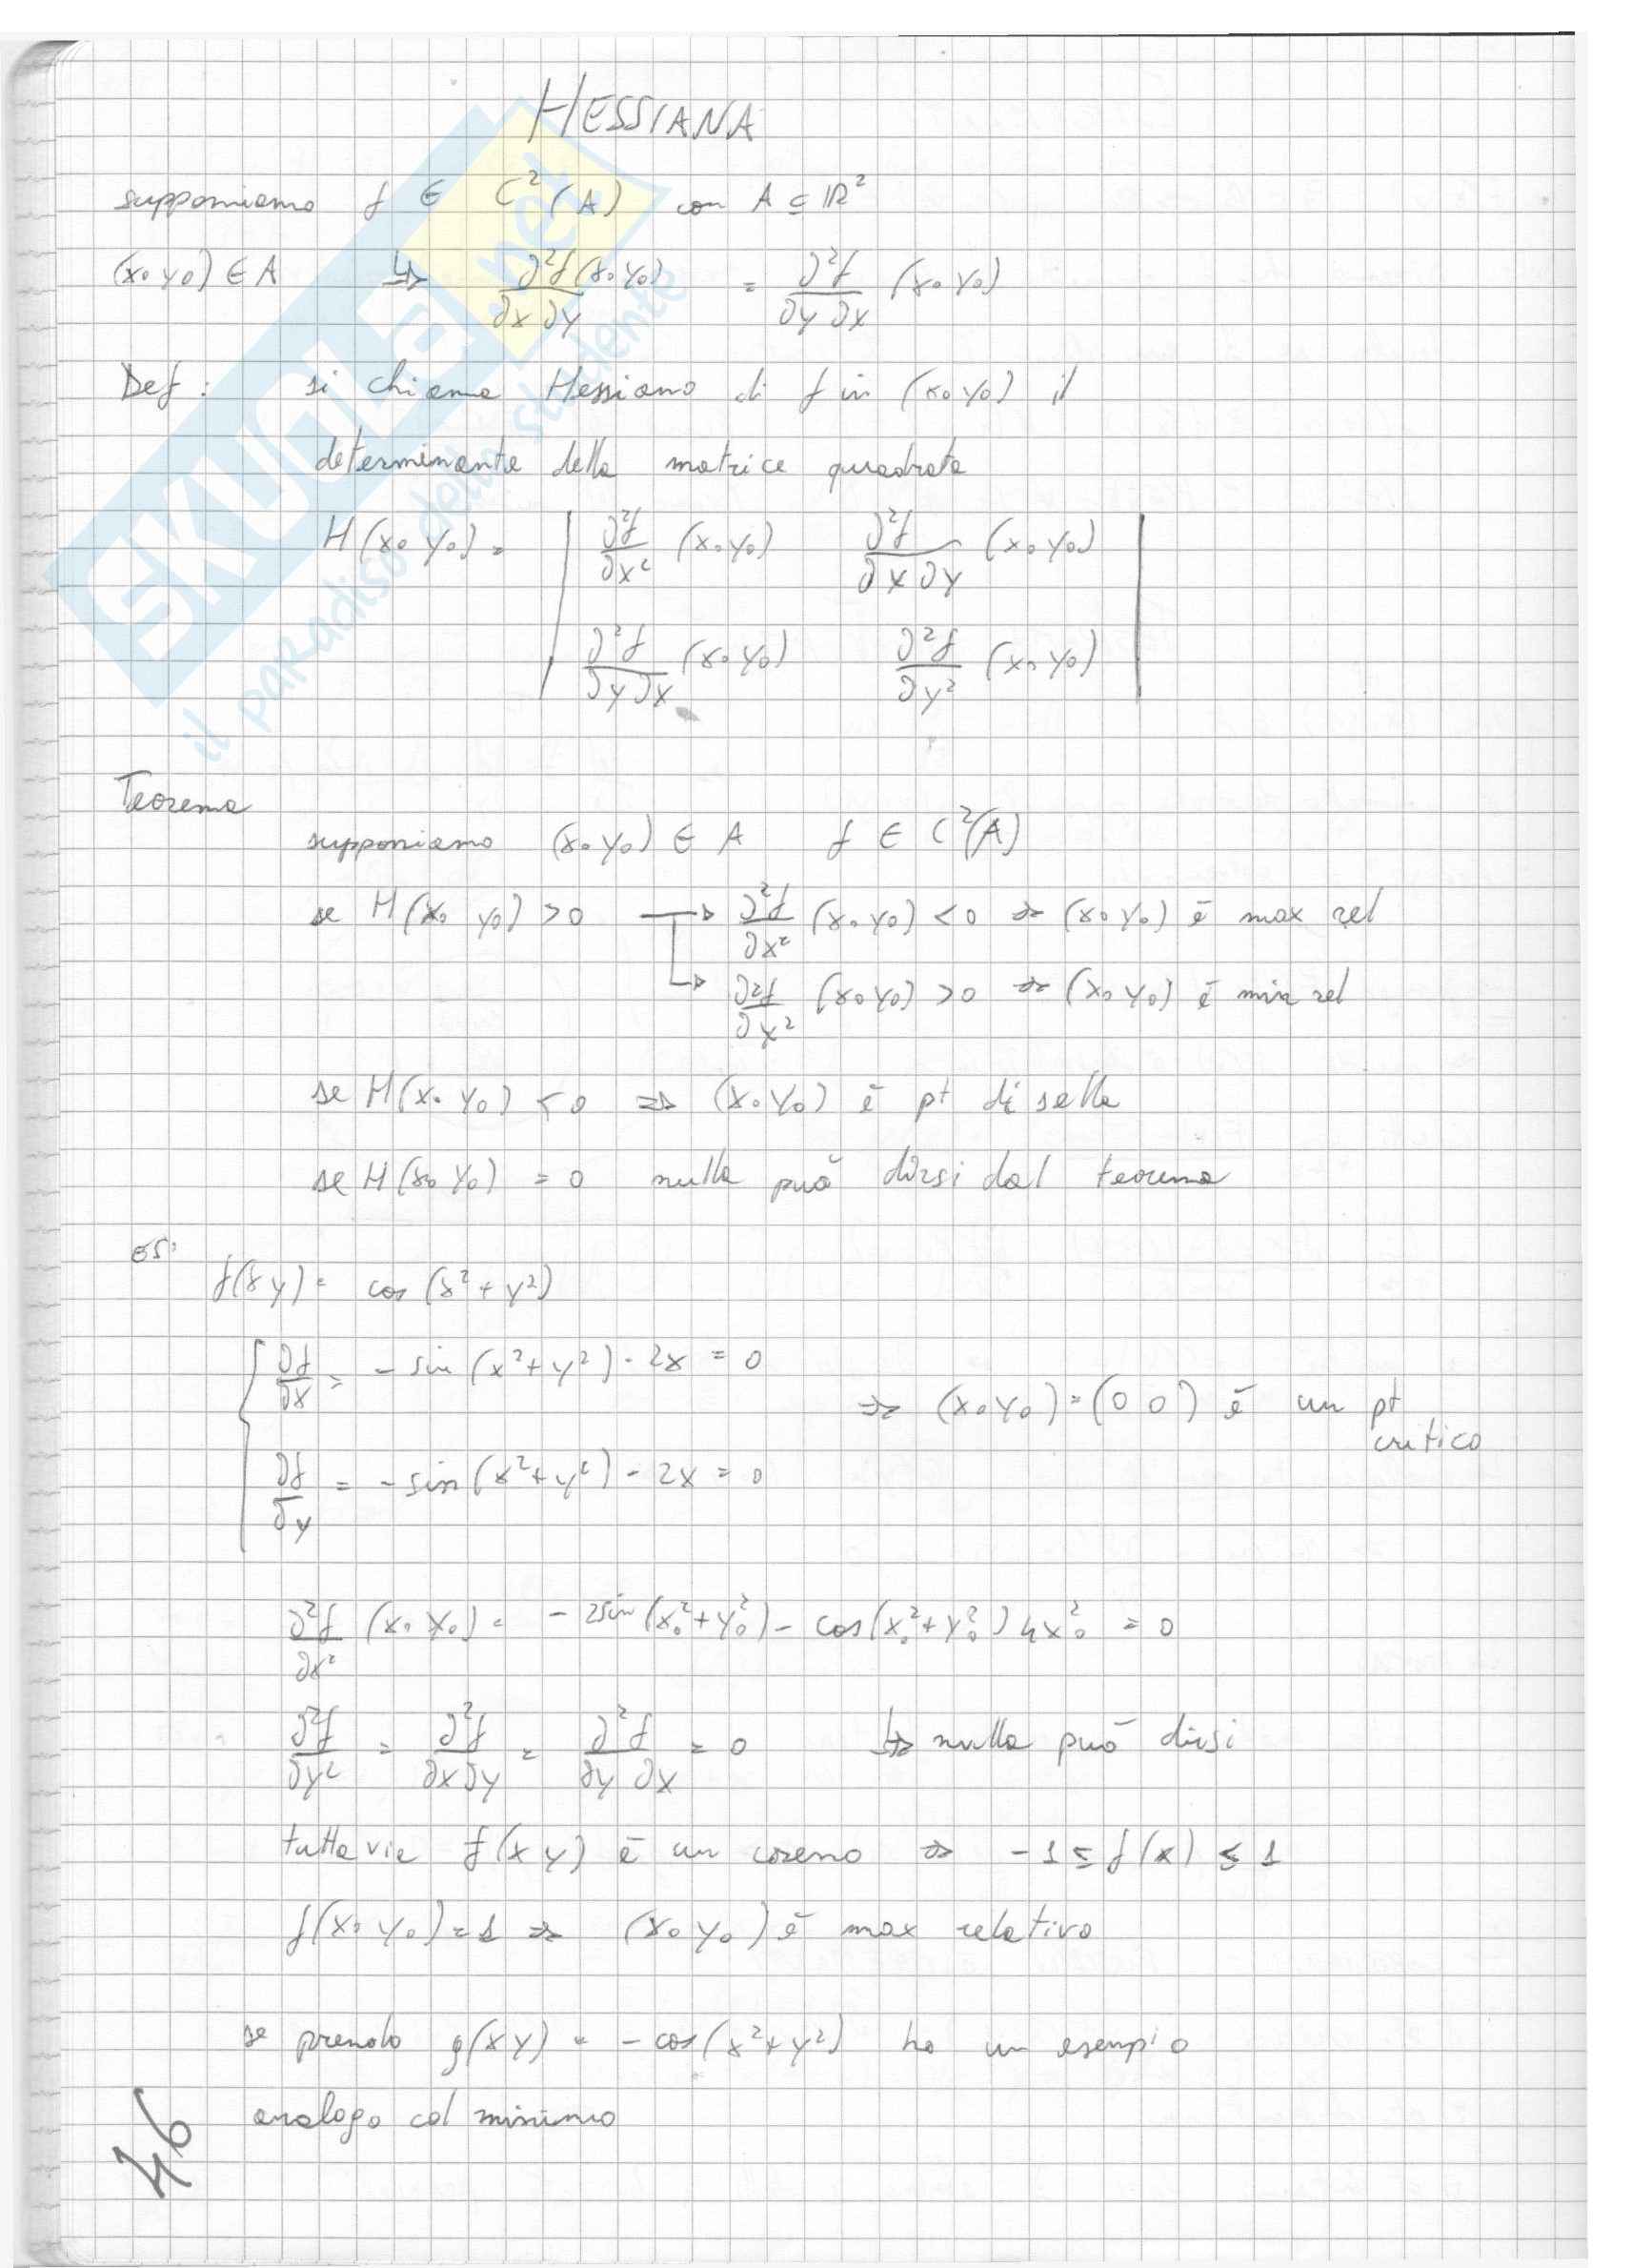 HESSIANA
supponiamo f ∈ C²(A) con A ⊆ ℝ²
(x₀ y₀) ∈ A ↳ ∂²f(x₀ y₀)/∂x∂y = ∂²f/∂y∂x (x₀ y₀)
Def: si chiama Hessiano di f in (x₀ y₀) il
determinante della matrice quadrata
H(x₀ y₀) = | ∂²f/∂x² (x₀ y₀) ∂²f/∂x∂y (x₀ y₀) |
| ∂²f/∂y∂x (x₀ y₀) ∂²f/∂y² (x₀ y₀) |
Teorema
supponiamo (x₀ y₀) ∈ A f ∈ C²(A)
se H(x₀ y₀) > 0 → ∂²f/∂x² (x₀ y₀) < 0 ⇒ (x₀ y₀) è max rel
↳ ∂²f/∂x² (x₀ y₀) > 0 ⇒ (x₀ y₀) è min rel
se H(x₀ y₀) < 0 ⇒ (x₀ y₀) è pt di sella
se H(x₀ y₀) = 0 nulla può dirsi dal teorema
es:
f(x y) = cos (x² + y²)
∂f/∂x = - sin (x² + y²) · 2x = 0
⇒ (x₀ y₀) = (0 0) è un pt
critico
∂f/∂y = - sin (x² + y²) · 2x = 0
∂²f/∂x² (x₀ y₀) = - 2sin (x₀² + y₀²) - cos (x₀² + y₀²) 4x₀² = 0
∂²f/∂y² = ∂²f/∂x∂y = ∂²f/∂y∂x = 0 ↳ nulla può dirsi
tuttavia f(x y) è un coseno ⇒ -1 ≤ f(x) ≤ 1
f(x₀ y₀) = 1 ⇒ (x₀ y₀) è max relativo
se prendo g(x y) = - cos (x² + y²) ho un esempio
analogo col minimo
46
SKUOLA.net
il paradiso dello studente